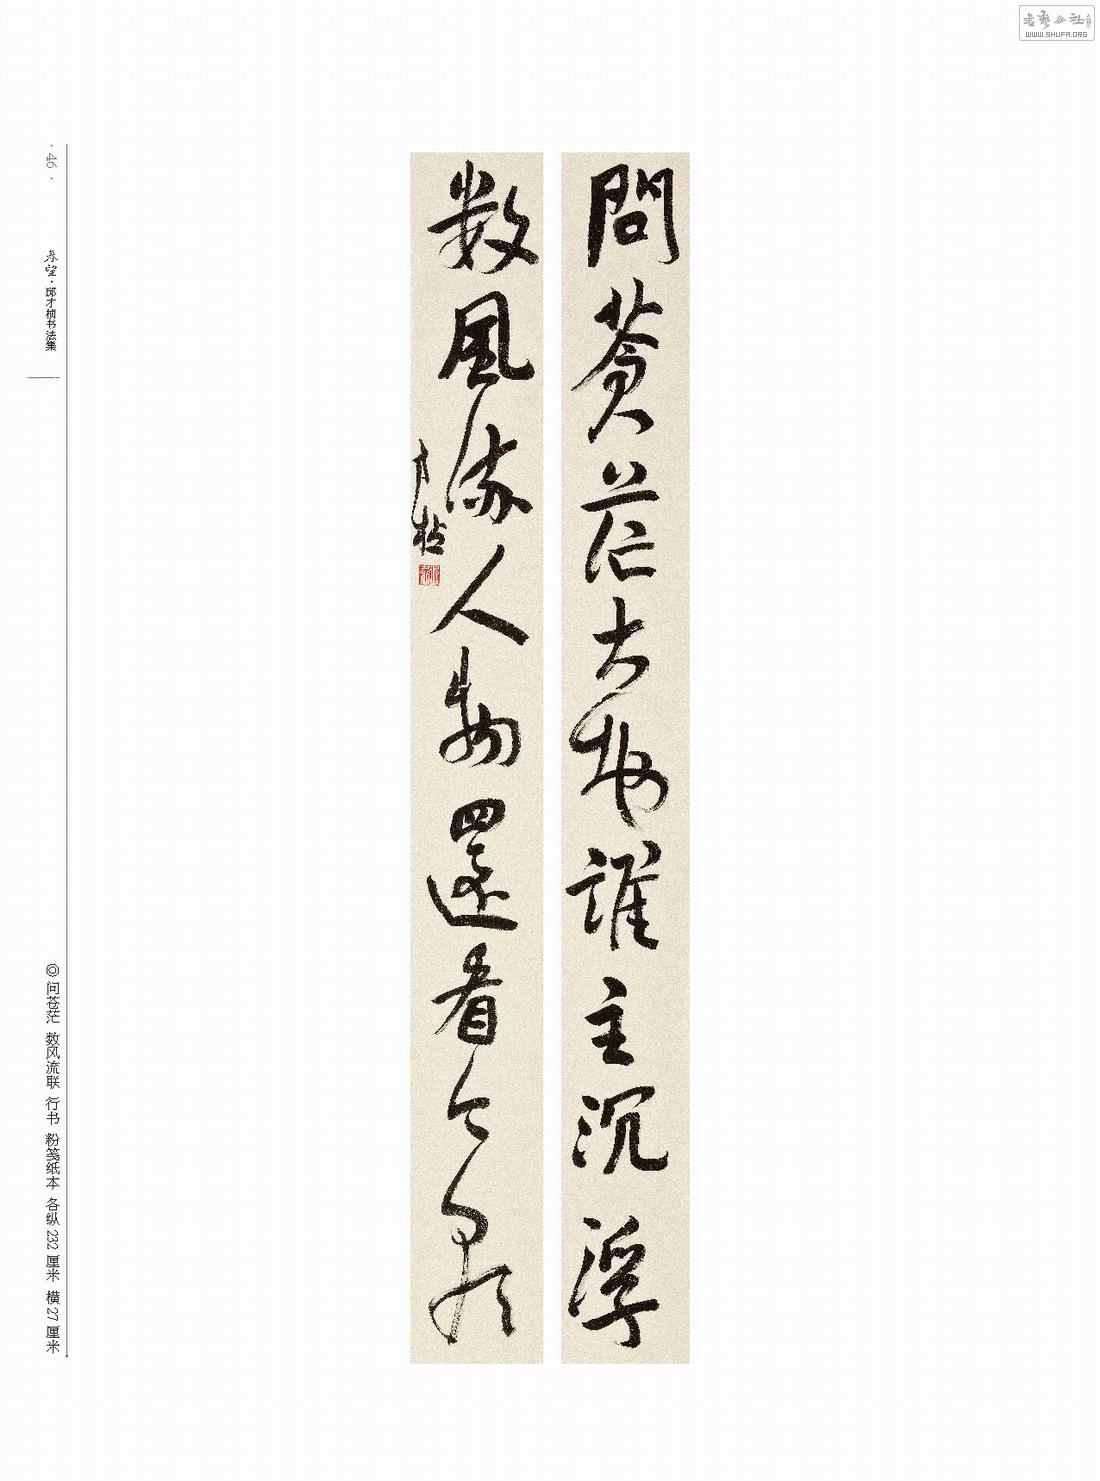 問蒼茫大地誰主沉浮
数風流人物還看今朝
· 46 ·
春望·邱才桢书法集
◎ 问苍茫 数风流联 行书 粉笺纸本 各纵 232 厘米 横 27 厘米
書藝公社
WWW.SHUFA.ORG